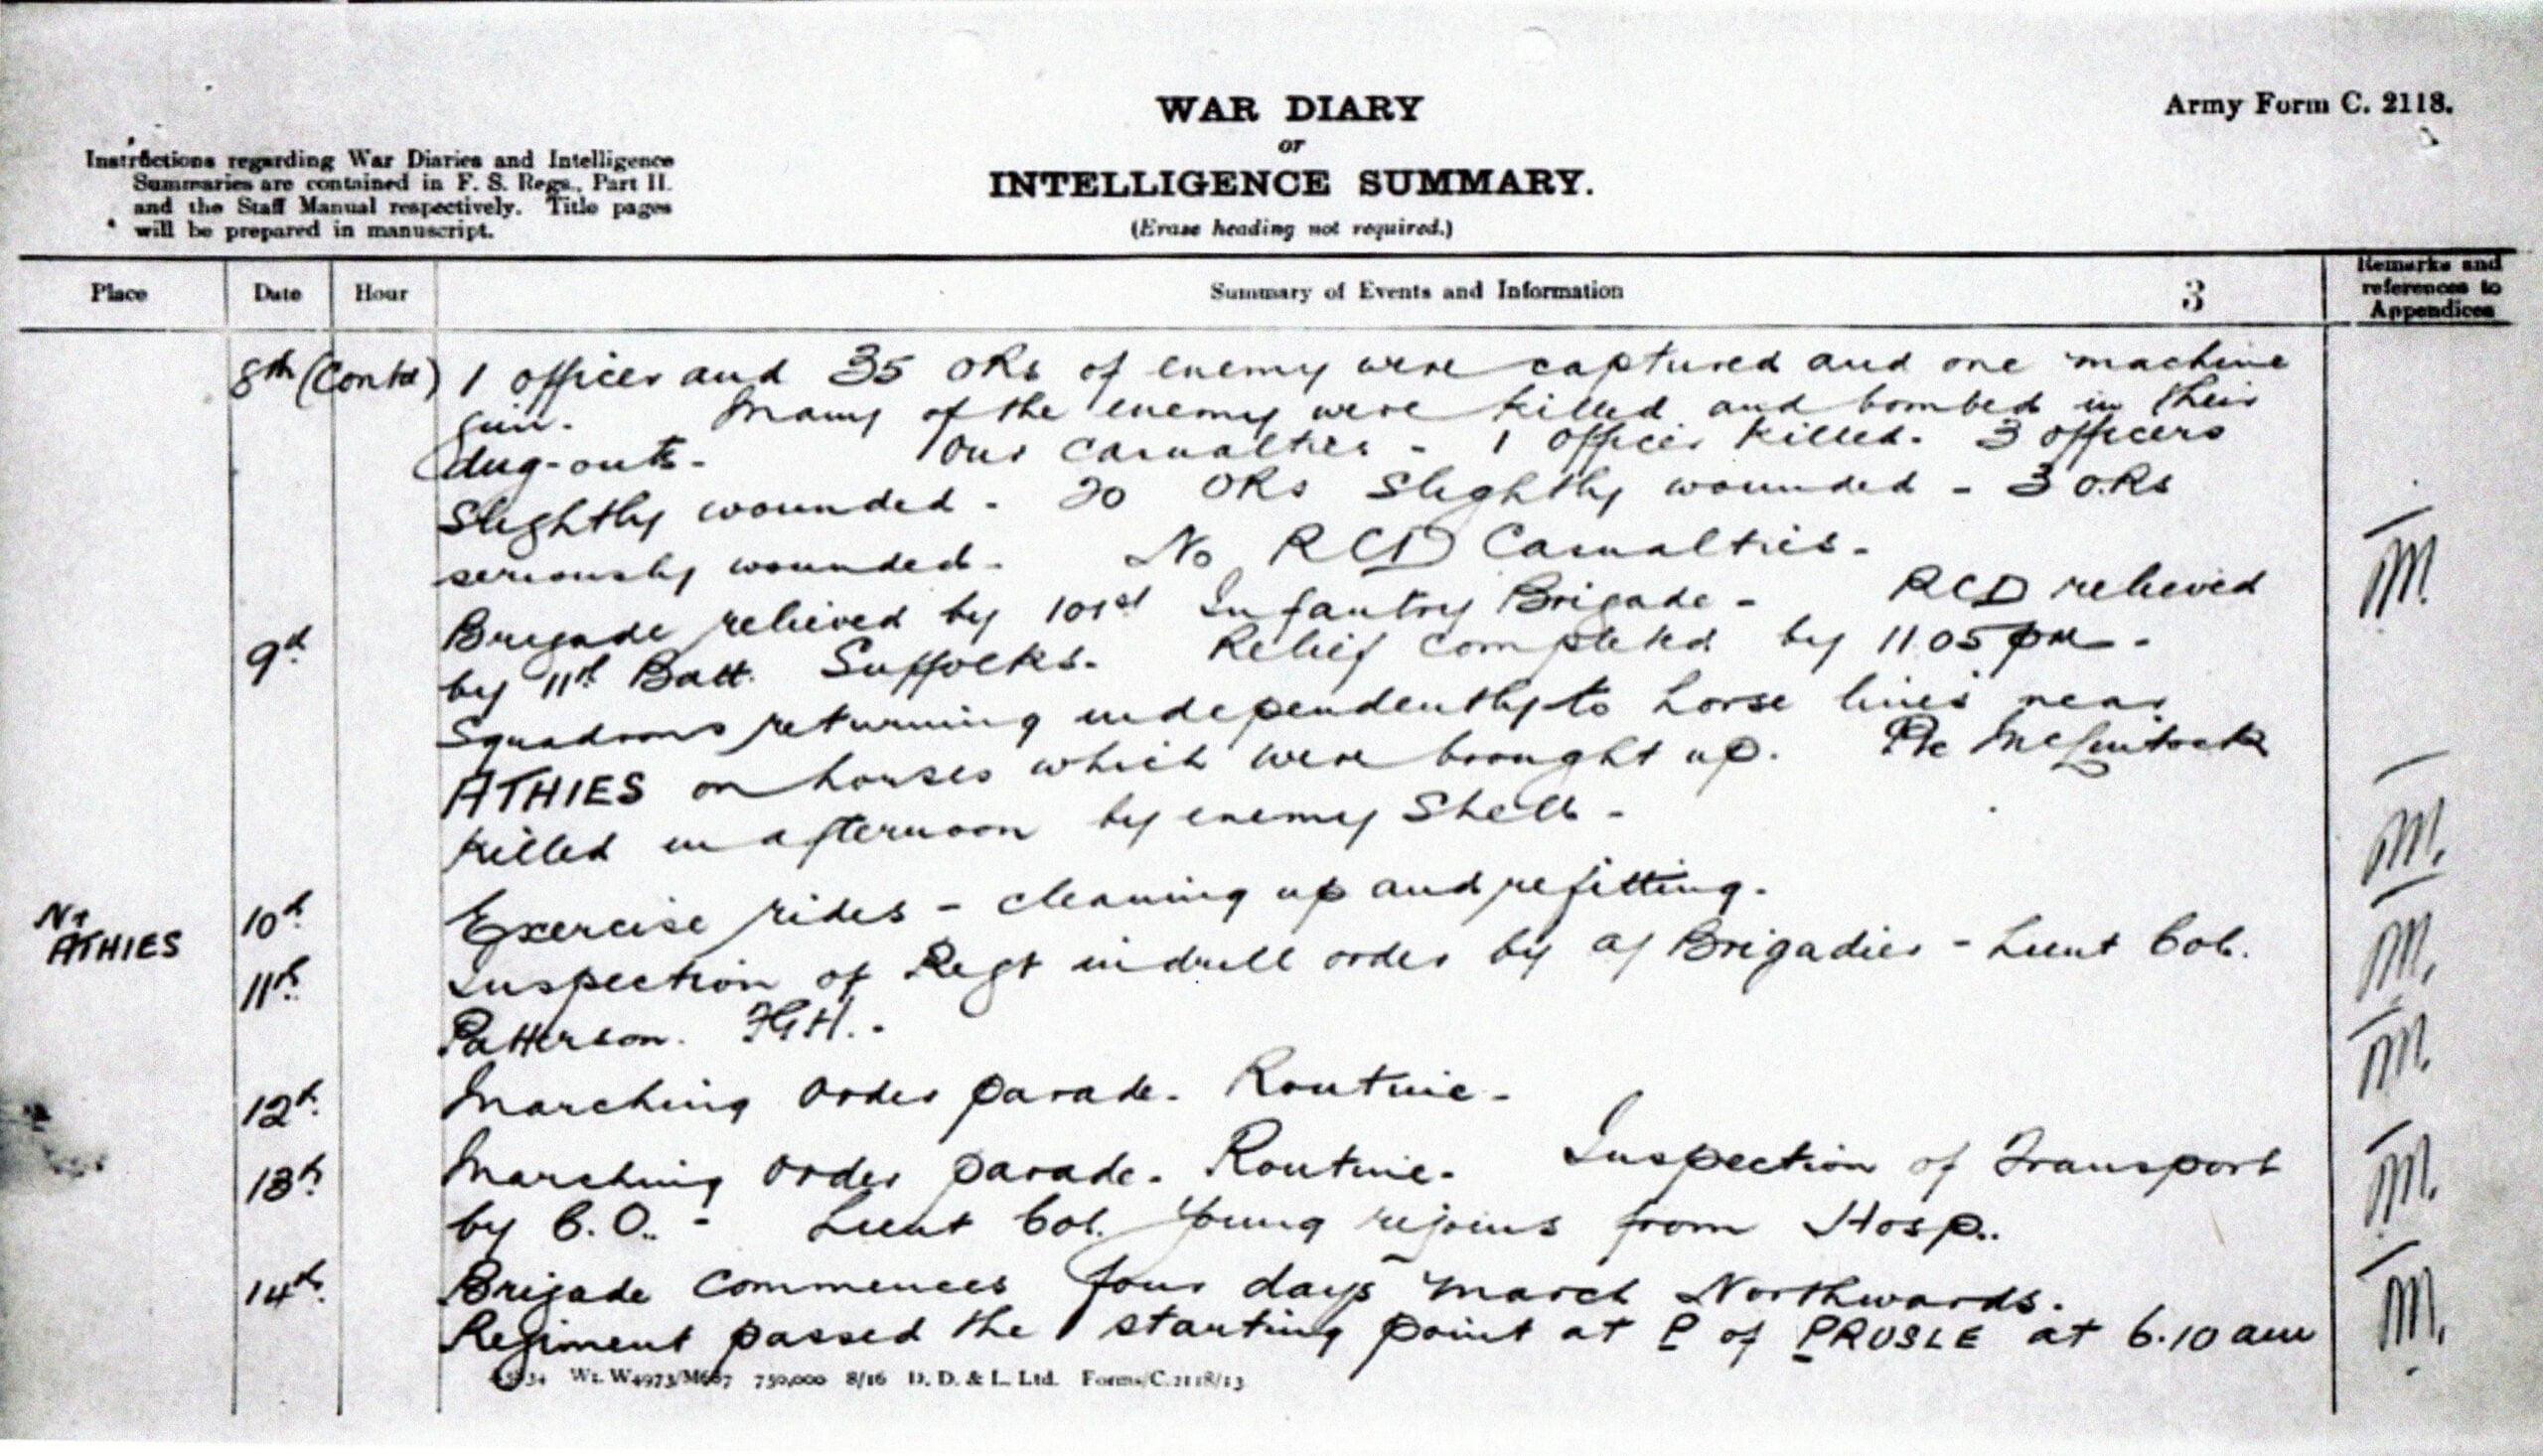 WAR DIARY
or
INTELLIGENCE SUMMARY.
(Erase heading not required.)
Army Form C. 2118.
Instructions regarding War Diaries and Intelligence
Summaries are contained in F. S. Regs., Part II.
and the Staff Manual respectively. Title pages
will be prepared in manuscript.
Place Date Hour Summary of Events and Information 3 Remarks and references to Appendices
8th (Contd) 1 officer and 35 ORs of enemy were captured and one machine
gun. Many of the enemy were killed and bombed in their
dug-outs - Our Casualties - 1 Officer killed. 3 officers
slightly wounded - 20 ORs slightly wounded - 3 O.Rs
seriously wounded - No RCD Casualties -
9th Brigade relieved by 101st Infantry Brigade - RCD relieved
by 11th Batt. Suffolks. Relief completed by 11 05 pm -
Squadrons returning independently to horse lines near
ATHIES on horses which were brought up. Pte McLintock
killed in afternoon by enemy Shell -
Nr ATHIES 10th Exercise rides - cleaning up and refitting.
11th Inspection of Regt in drill order by a/ Brigadier - Lieut Col.
Patterson. FGH. -
12th Marching Order parade. Routine -
13th Marching Order parade. Routine - Inspection of Transport
by C.O. - Lieut Col. Young rejoins from Hosp..
14th Brigade Commences four days march Northwards.
Regiment passed the starting point at P of PRUSLE at 6.10 am
Wt. W4973/M687 750,000 8/16 D. D. & L. Ltd. Forms/C.2118/13